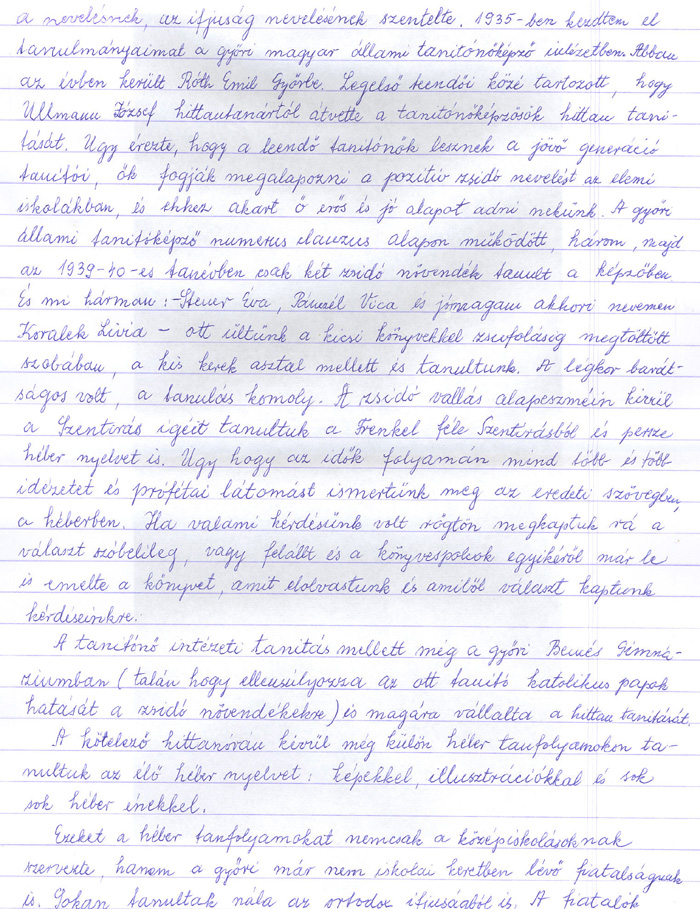 a nevelésnek, az ifjuság nevelésének szentelte. 1935-ben kezdtem el
tanulmányaimat a győri magyar állami tanitónőképző intézetben. Abban
az évben került Róth Emil Győrbe. Legelső teendői közé tartozott, hogy
Ullmann József hittantanártól átvette a tanitónőképzősök hittan tani-
tását. Ugy érezte, hogy a leendő tanitónők lesznek a jövő generáció
tanitói, ők fogják megalapozni a pozitiv zsidó nevelést az elemi
iskolákban, és ehhez akart ő erős és jó alapot adni nekünk. A győri
állami tanitóképző numerus clauzus alapon müködött, három, majd
az 1939-40-es tanévben csak két zsidó növendék tanult a képzőben
És mi hárman: - Steur Éva, Pánczél Vica és jómagam akkori nevemen
Koralek Livia - ott ültünk a kicsi könyvekkel zsufolásig megtöltött
szobában, a kis kerek asztal mellett és tanultunk. A légkör barát-
ságos volt, a tanulás komoly. A zsidó vallás alapeszméin kivül
a Szentirás igéit tanultuk a Frenkel féle Szentirásból és persze
héber nyelvet is. Ugy hogy az idők folyamán mind több és több
idézetet és prófétai látomást ismertünk meg az eredeti szövegben,
a héberben. Ha valami kérdésünk volt rögtön megkaptuk rá a
választ szóbelileg, vagy felállt és a könyvespolcok egyikéről már le
is emelte a könyvet, amit elolvastunk és amiből választ kaptunk
kérdéseinkre.
A tanitónő intézeti tanitás mellett még a győri Bencés Gimná-
ziumban (talán hogy ellensúlyozza az ott tanitó katolikus papok
hatását a zsidó növendékekre) is magára vállalta a hittan tanitását.
A kötelező hittanórán kivül még külön héber tanfolyamokon ta-
nultuk az élő héber nyelvet: képekkel, illusztrációkkal és sok
sok héber énekkel.
Ezeket a héber tanfolyamokat nemcsak a középiskolásoknak
szervezte, hanem a győri már nem iskolai keretben lévő fiatalságnak
is. Sokan tanultak nála az ortodox ifjuságból is. A fiatalok